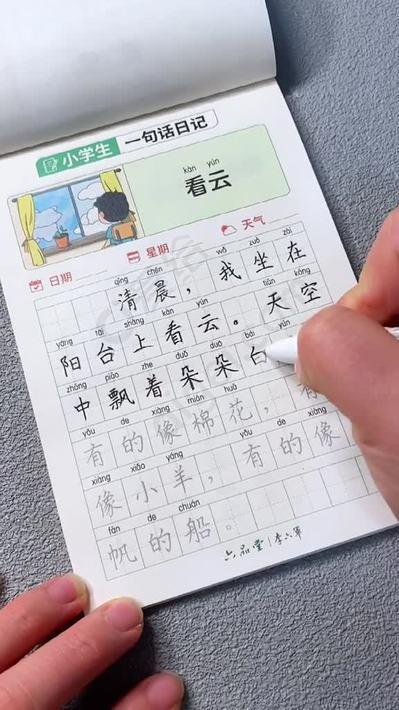 小学生 一句话日记
kàn yún
看云
日期 星期 天气
qīng chén wǒ zuò zài
清晨，我坐在
yáng tái shàng kàn yún tiān kōng
阳台上看云。天空
zhōng piāo zhe duǒ duǒ bái yún
中飘着朵朵白
yǒu de xiàng mián huā
有的像棉花，有
xiàng xiǎo yáng
像小羊，有的像
fān de chuán
帆的船。
六品堂 | 李六军